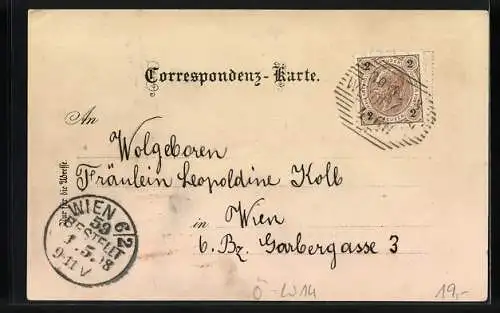 2 2
2 2
Correspondenz-Karte.
An
Wolgeboren
Fräulein Leopoldine Kolb
in Wien
6. Bz. Garbergasse 3
Nur für die Adresse.
WIEN 6/2
59
BESTELLT
1.5.98
9-11V
Ö-W14
19,-